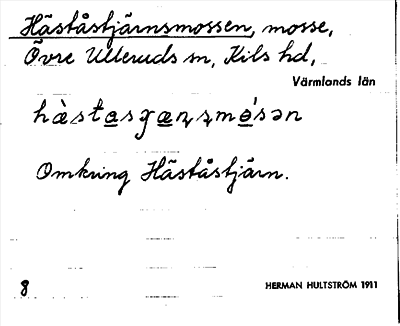 Häståstjärnsmossen, mosse,
Övre Ulleruds sn, Kils hd,
Värmlands län
hàstasgæɳʂmósən
Omkring Häståstjärn.
8
HERMAN HULTSTRÖM 1911